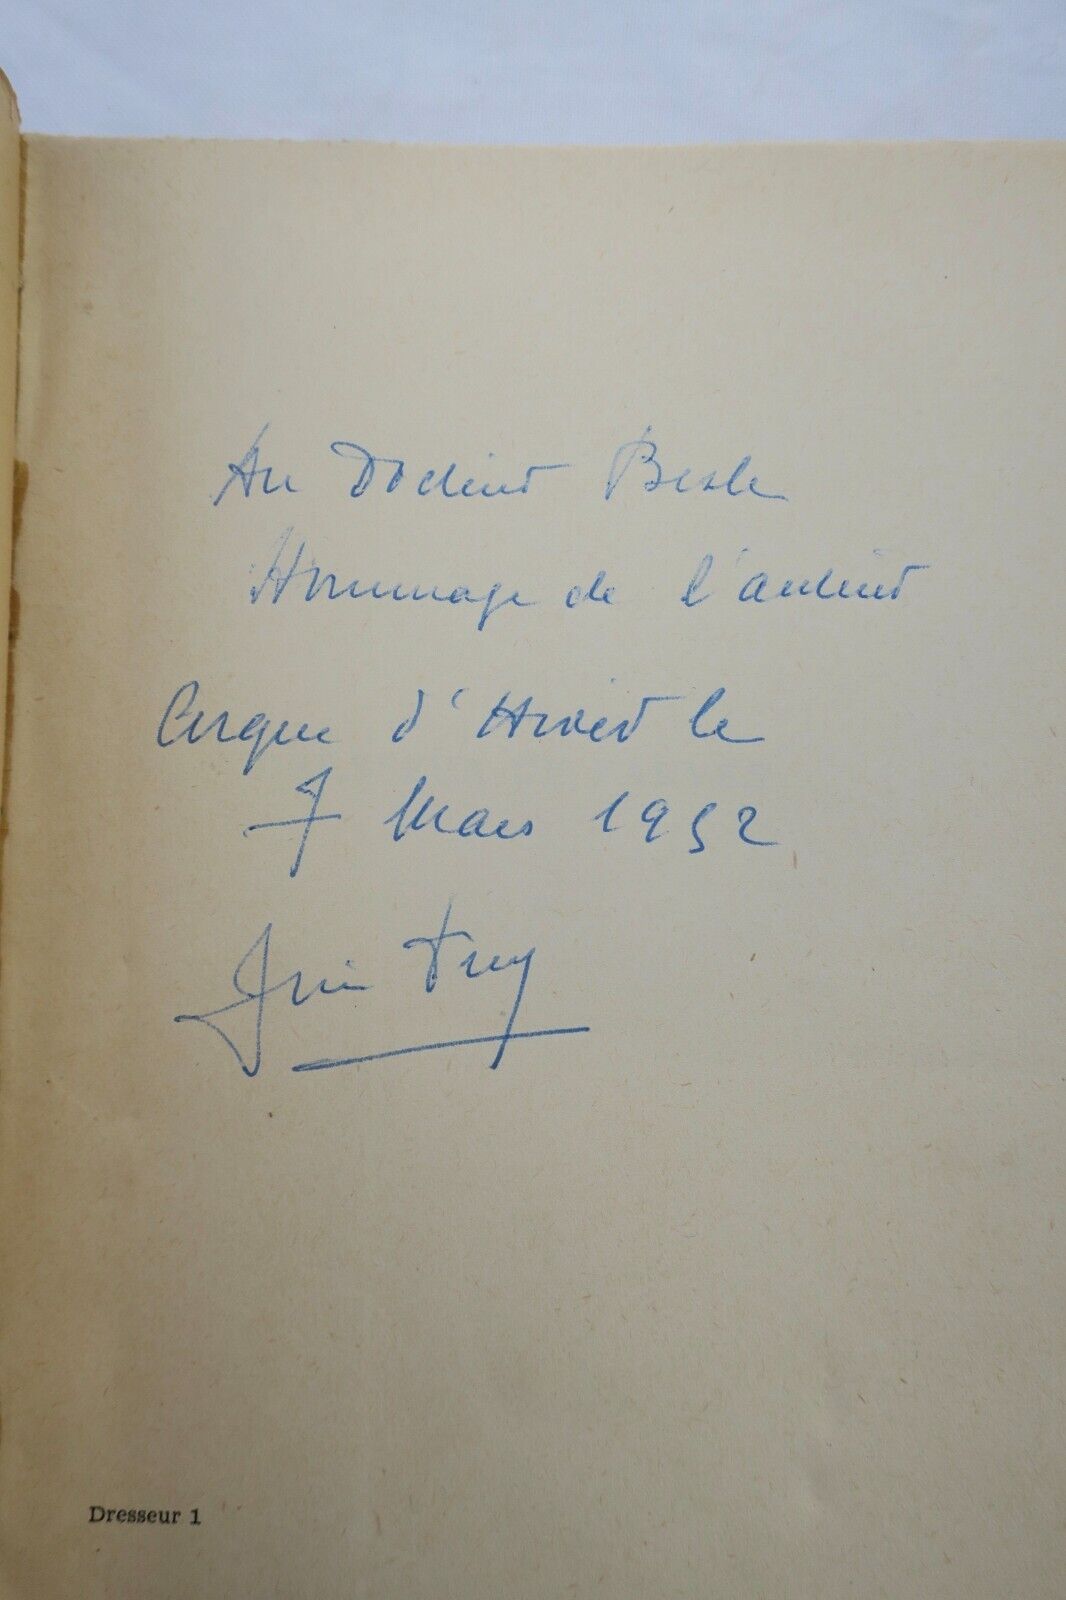 Au Docteur Besle
Hommage de l'auteur
Cirque d'Hiver le
7 Mars 1952
Jim Frey
Dresseur 1